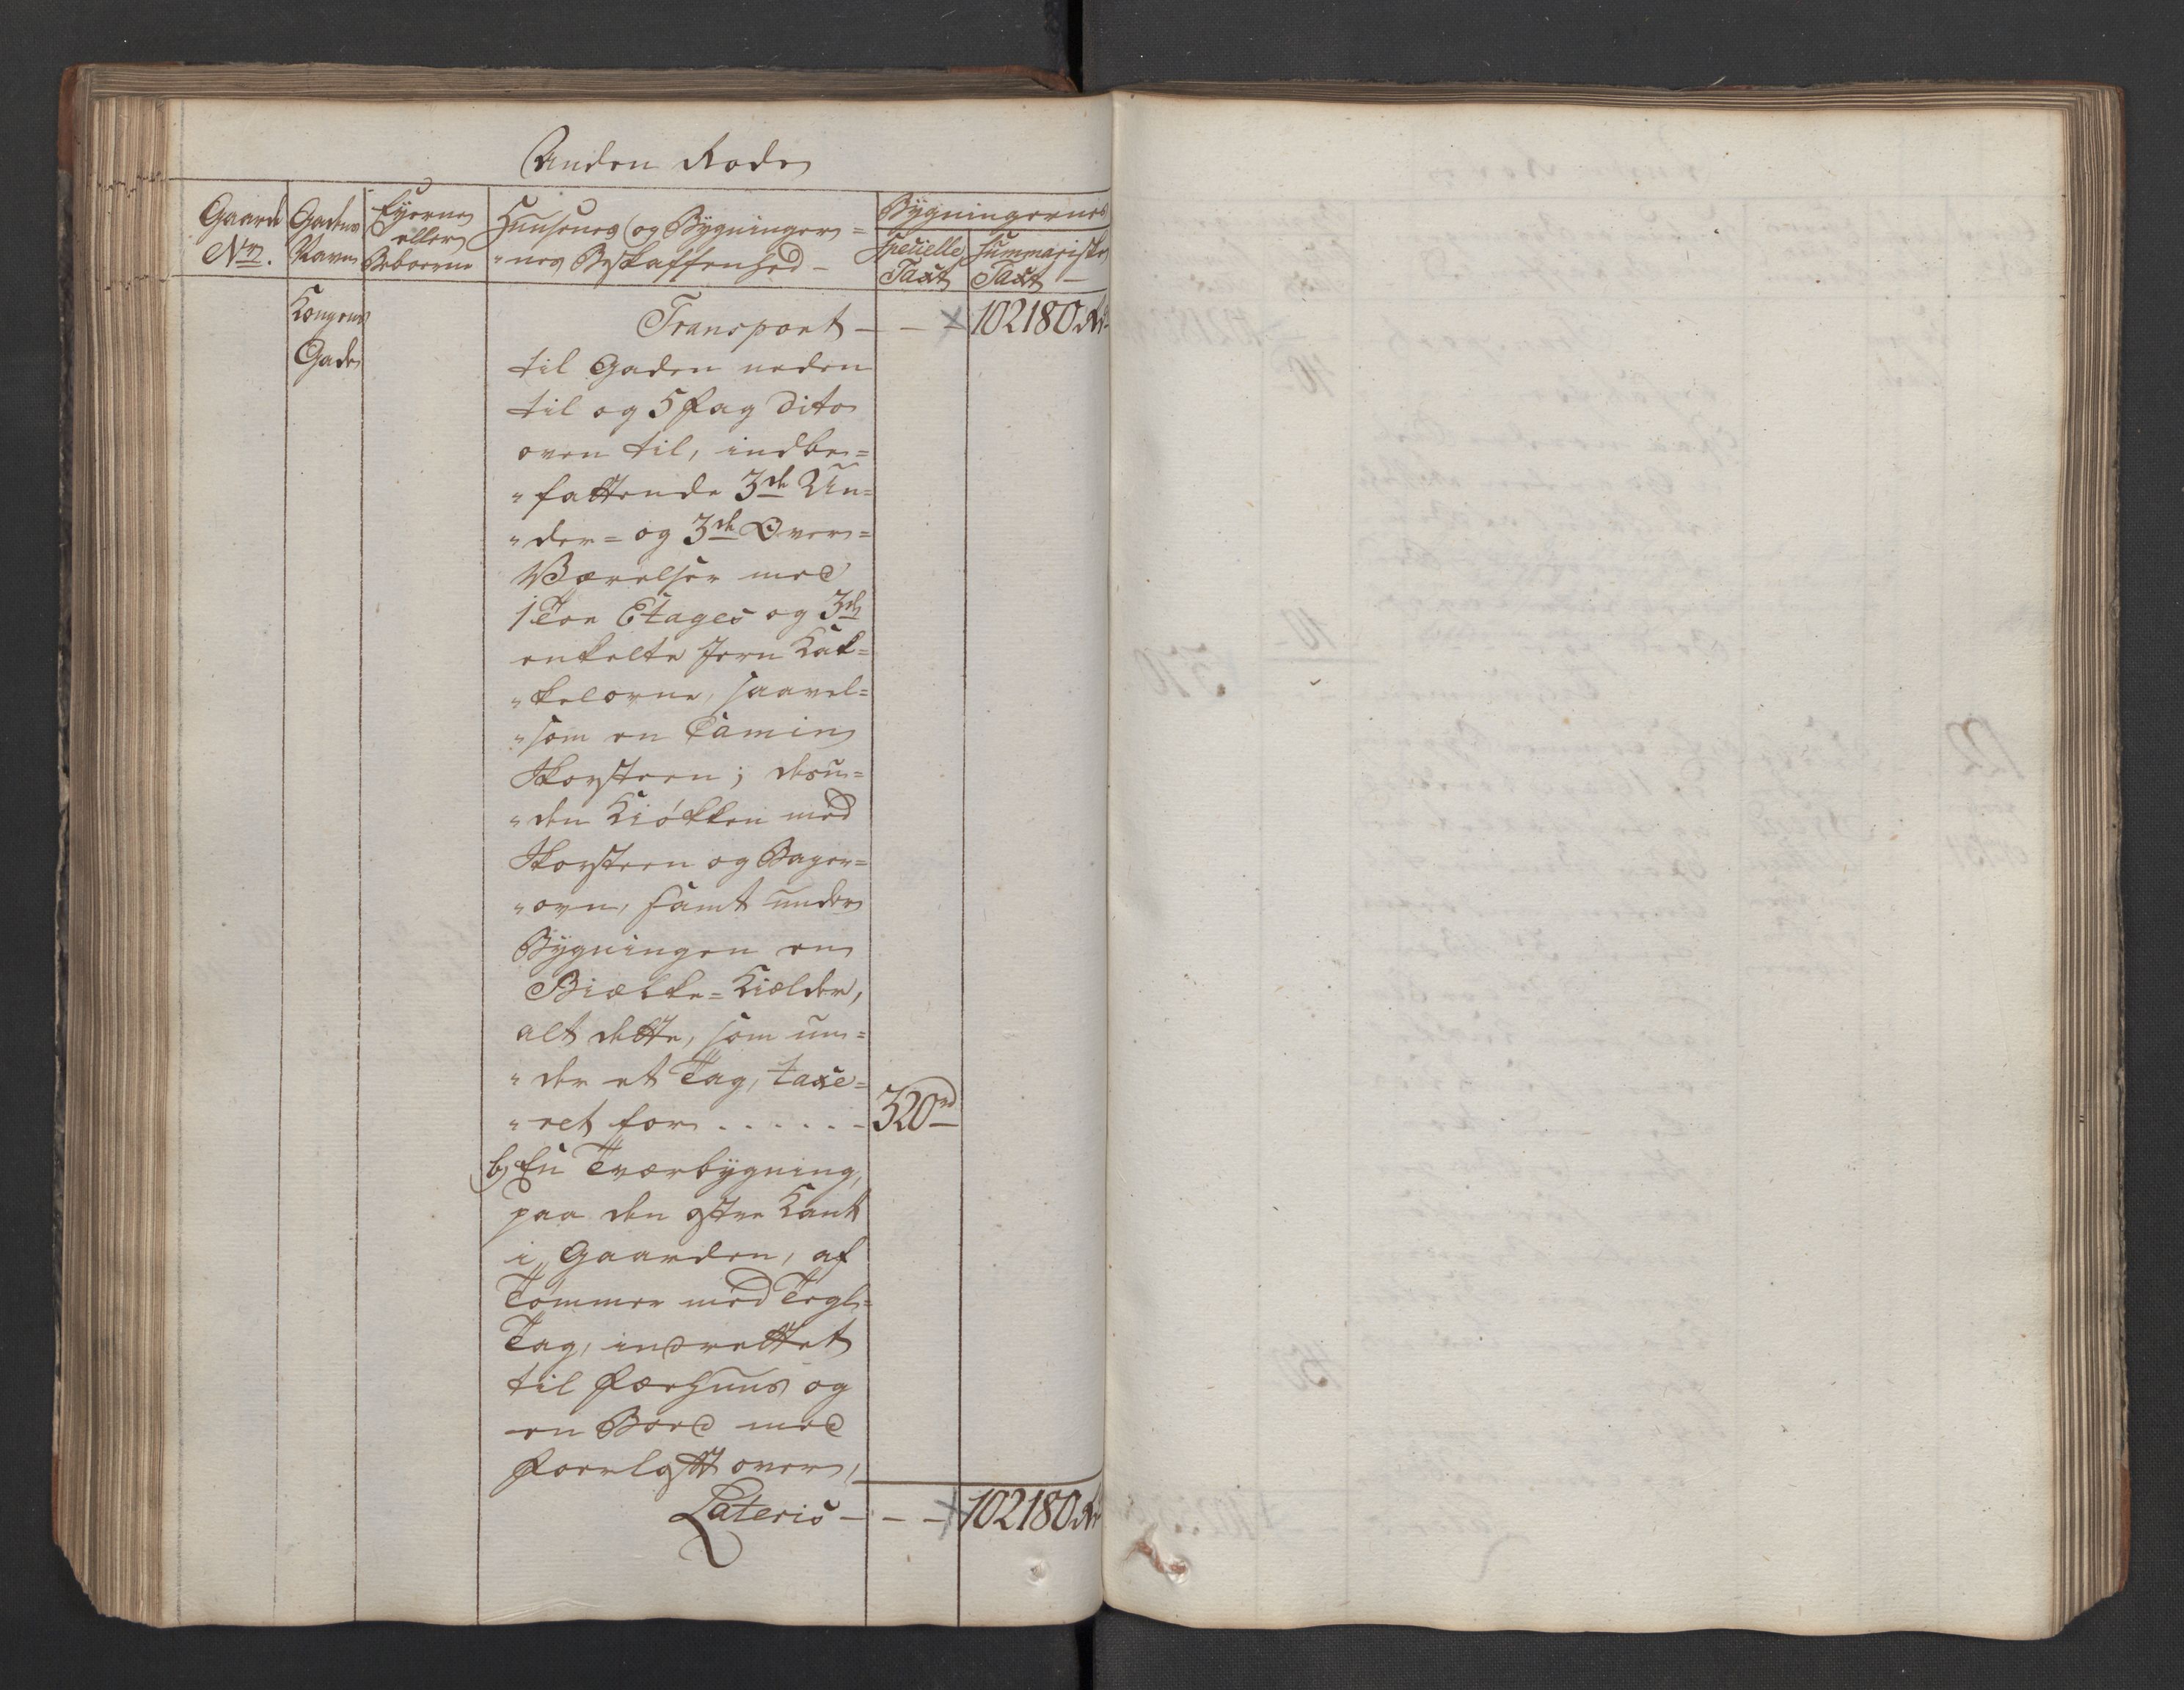 Anden Rode
Gaard
Nr.
Gadens
Navn
Eyerne
eller
Beboerne
Huusenes og Bygninger=
"nes Beskaffenhed –
Bygningernes
Specielle
Taxt
Summariske
Taxt –
Kongens
Gade
Transport – – – 102180 Rd
til Gaden neden
til og 5 Fag dito
oven til, indbe=
"fattende 3de Un=
"der= og 3de Over=
Værelser med
1 Toe Etages og 3de
enkelte Jern Kak=
"kelovne, saavel=
"som en Camin
Skorsteen; desu=
"den Kiøkken med
Skorsteen og Bager=
"ovn, samt under
Bygningen en
Biælke=Kielder,
alt dette, som un=
"der et Tag, taxe=
"ret for . . . . . – 320rd –
b, En Tværbygning,
paa den østre Kant
i Gaarden, af
Tømmer med Tegl=
Tag, indrettet
til Færhuus og
en Boed med
Foerloftt over,
Lateris – – – 102180 Rd